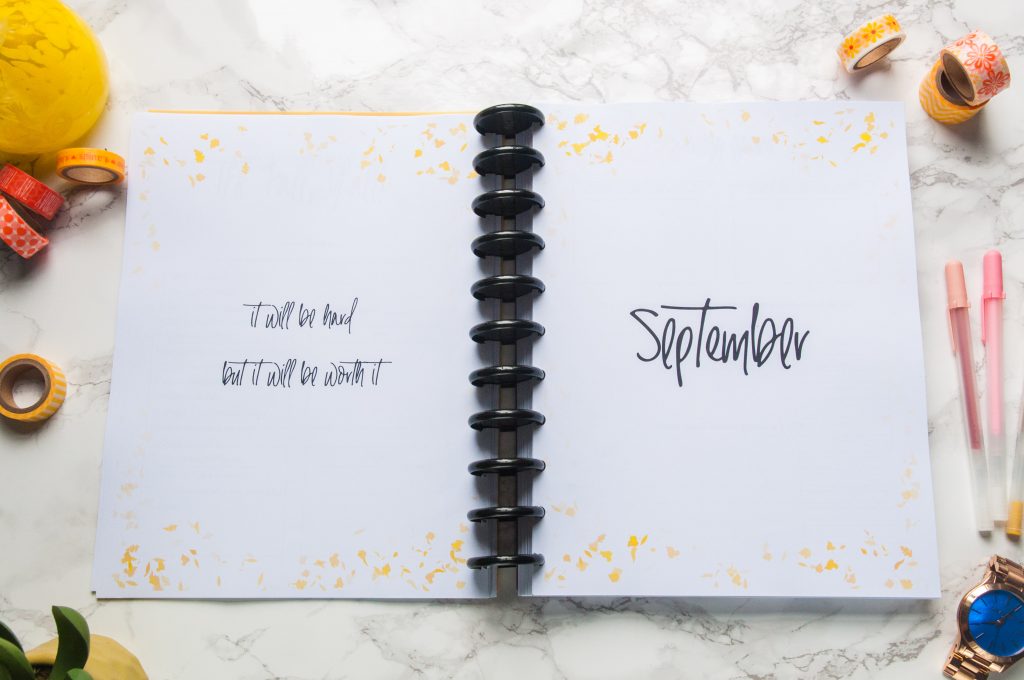 it will be hard
but it will be worth it
September